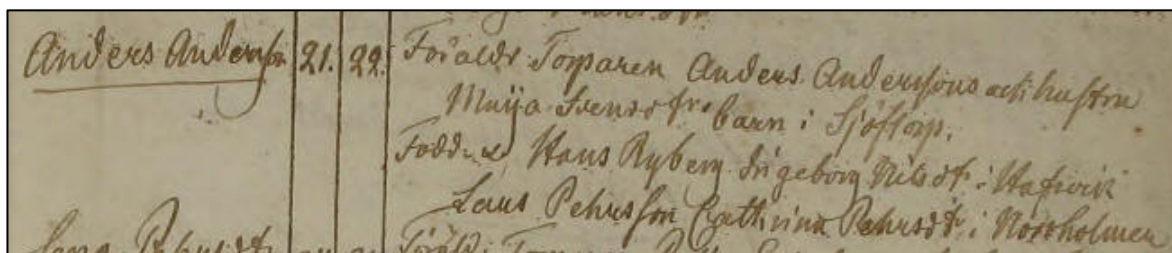 Anders Andersson 21. 22. Föräldr. Torparen Anders Anderssons och hustru
Maija Svensdtr. barn i Sjöstorp.
Fadd. Hans Ryberg Ingeborg Nilsdt. i
Lars Pehrsson Cathrina Pehrsdtr i Norrholmen